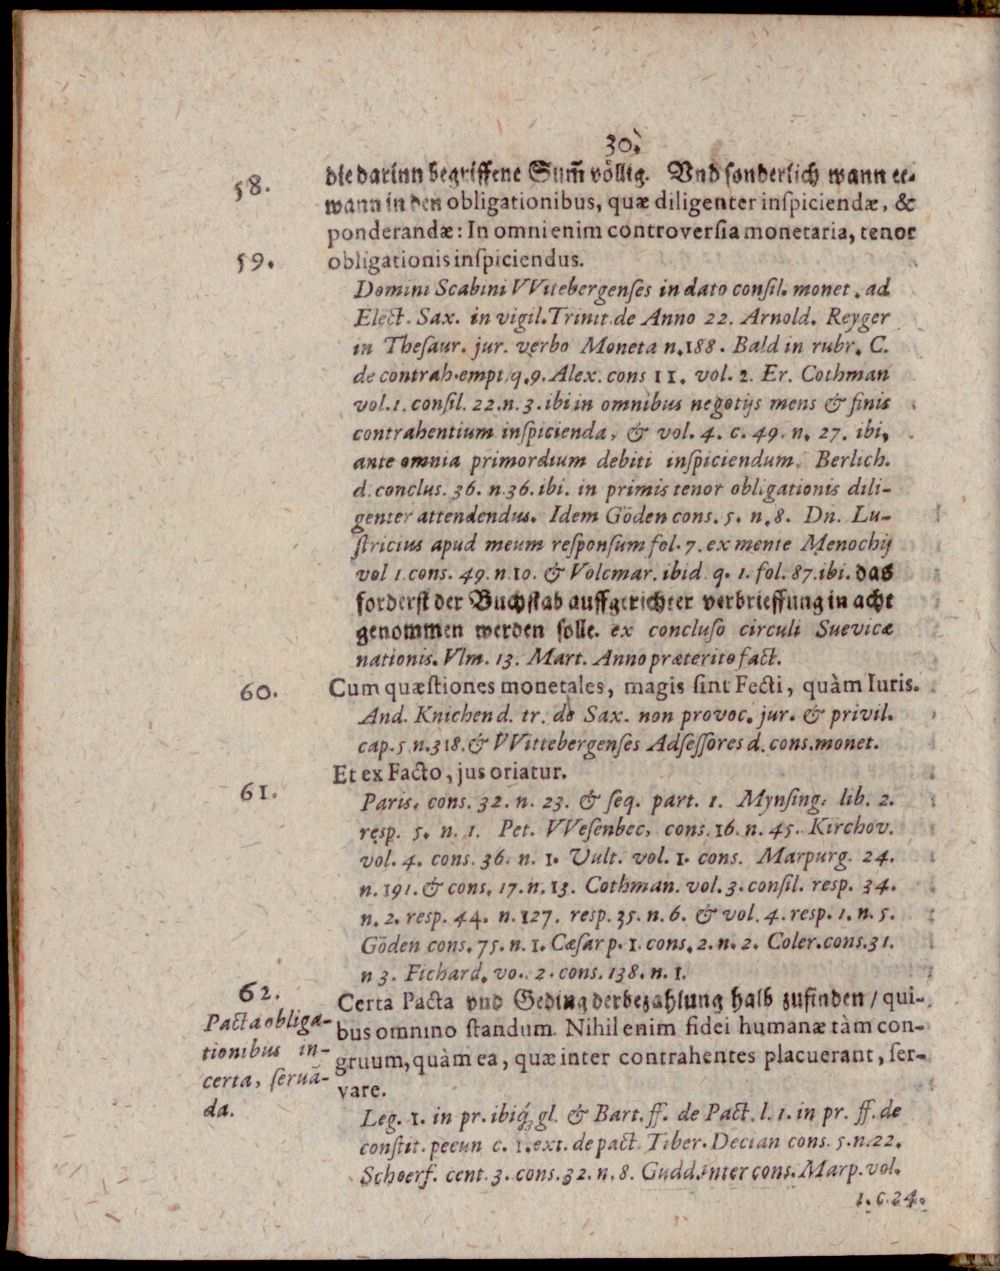 30.
58.
die darinn begriffene Sum̃ völlig. Vnd sonderlich wann et-
wann in den obligationibus, quæ diligenter inſpiciendæ, &
ponderandæ: In omni enim controverſia monetaria, tenor
59.
obligationis inſpiciendus.
Domini Scabini VVitebergenſes in dato conſil. monet. ad
Elect. Sax. in vigil. Trinit. de Anno 22. Arnold. Reyger
in Theſaur. jur. verbo Moneta n. 188. Bald in rubr. C.
de contrah. empt. q. 9. Alex. cons 11. vol. 2. Er. Cothman
vol. 1. conſil. 22. n. 3. ibi in omnibus negotijs mens & finis
contrahentium inſpicienda, & vol. 4. c. 49. n. 27. ibi,
ante omnia primordium debiti inſpiciendum. Berlich.
d. conclus. 36. n. 36. ibi. in primis tenor obligationis dili-
genter attendendus. Idem Göden cons. 5. n. 8. Dn. Lu-
ſtricius apud meum reſponſum fol. 7. ex mente Menochij
vol 1. cons. 49. n. 10. & Volcmar. ibid. q. 1. fol. 87. ibi. das
forderſt der Buchſtab auffgerichter verbrieffung in acht
genommen werden ſolle. ex concluſo circuli Suevicæ
nationis. Vlm. 13. Mart. Anno præterito fact.
60.
Cum quæſtiones monetales, magis ſint Fecti, quàm Iuris.
And. Knichen d. tr. de Sax. non provoc. jur. & privil.
cap. 5 n. 318. & VVittebergenſes Adſeſſores d. cons. monet.
Et ex Facto, jus oriatur.
61.
Paris. cons. 32. n. 23. & ſeq. part. 1. Mynſing. lib. 2.
reſp. 5. n. 1. Pet. VVeſenbec, cons. 16. n. 45. Kirchov.
vol. 4. cons. 36. n. 1. Vult. vol. 1. cons. Marpurg. 24.
n. 191. & cons. 17. n. 13. Cothman. vol. 3. conſil. resp. 34.
n. 2. resp. 44. n. 127. resp. 35. n. 6. & vol. 4. resp. 1. n. 5.
Göden cons. 75. n. 1. Cæſar p. 1. cons. 2. n. 2. Coler. cons. 31.
n 3. Fichard. vo. 2. cons. 138. n. 1.
62.
Pacta obliga-
tionibus in-
certa, ſervã-
da.
Certa Pacta vnd Geding der bezahlung halb zufinden / qui-
bus omnino ſtandum. Nihil enim fidei humanæ tàm con-
gruum, quàm ea, quæ inter contrahentes placuerant, ſer-
vare.
Leg. 1. in pr. ibiq́; gl. & Bart. ff. de Pact. l. 1. in pr. ff. de
conſtit. pecun c. 1. ext. de pact. Tiber. Decian cons. 5. n. 22.
Schoerf. cent. 3. cons. 32. n. 8. Gudd. inter cons. Marp. vol.
1. c. 24.